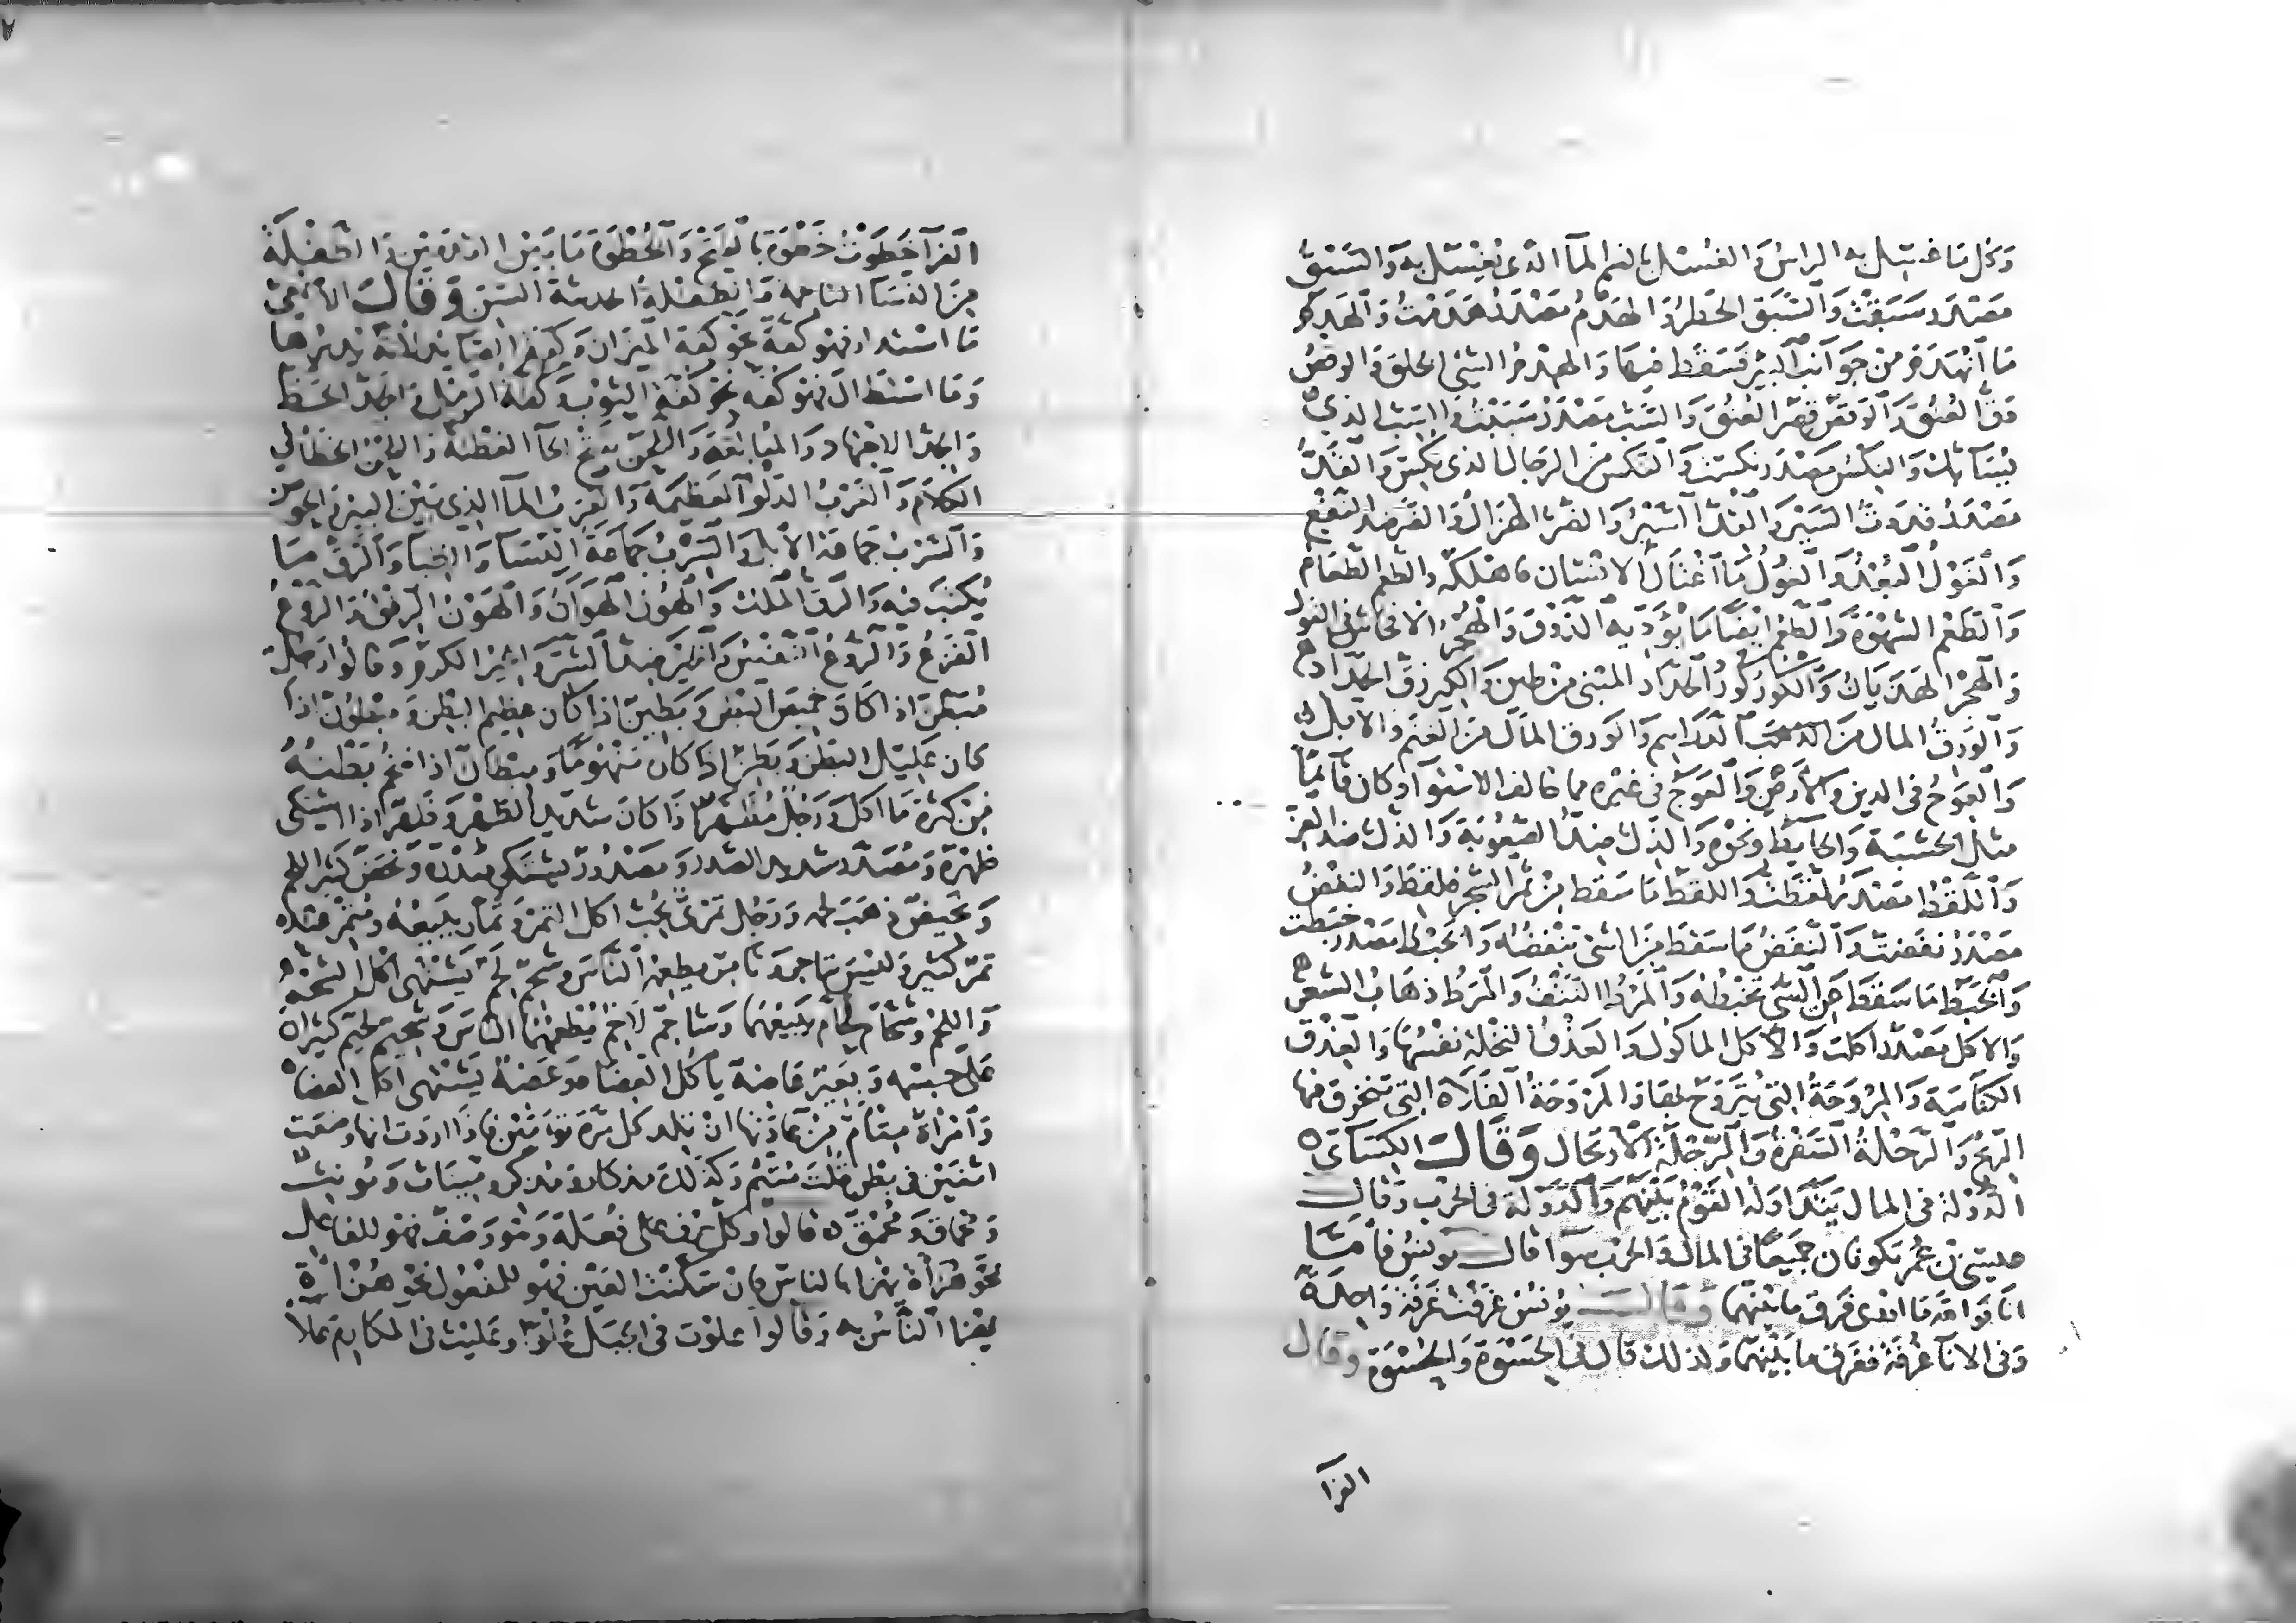 وكل ما غسل به الراس والغسل بالضم الماء الذي يغتسل به والسبق
مصدر سبقت والسبق الخطر والهدم مصدر هدمت والهدم
ما انهدم من جوانب البئر فسقط فيها والهدم الشيء الخلق والوقص
دق العنق والوقص قصر العنق والسب مصدر سببت والسب الذي
يسابك والنكس مصدر نكست والنكس من الرجال الذي نكس والقد
مصدر قددت السير والقد السير والضر الهزال والضر ضد النفع
والغول البعد والغول ما اغتال الانسان فاهلكه والطعم الطعام
والطعم الشهوة والطعم ايضا ما يؤديه الذوق والهجر الافحاش في القول
والهجر الهذيان والكور كور الحداد المبني من طين والكير زق الحداد
والورق المال من الدراهم والورق المال من الغنم والابل
والعوج في الدين والارض والعوج في غيره مما خالف الاستواء وكان قائما
مثل الخشبة والحايط ونحوه والذل ضد الصعوبة والذل ضد العز
واللقط مصدر لقطت واللقط ما سقط من ثمر الشجر فلقط والنفض
مصدر نفضت والنفض ما سقط من الشئ تنفضه والخبط مصدر خبطت
والخبط ما سقط من الشي تخبطه والمرط النتف والمرط ذهاب الشعر
والاكل مصدر اكلت والاكل الماكول والعذق النخلة نفسها والعذق
الكباسة والمروحة التي يتروح بها والمروحة الفلاة التي تنخرق فيها
الريح والرحلة السفرة والرحلة الارتحال وقال الكساي
الدولة في المال يتداوله القوم بينهم والدولة في الحرب وقال
عيسى بن عمر تكونان جميعا في المال والحرب سوا قال يونس فاما
انا فوالله ما ادري فرق ما بينهما وقال يونس غرفت غرفة واحدة
وفي الانا غرفة ففرق ما بينهما وكذلك قال في الحسوة والحسوة وقال
الفرا
الفرا خطوت خطوة بالفتح والخطوة ما بين القدمين والطفلة
من النسا الناعمة والطفلة الحديثة السن وقال الاصمعي
ما استدار فهو كفة نحو كفة الميزان وكفة الصايد لانه يديرها
وما استطال فهو كفة نحو كفة الثوب وكفة الرمل والجد الحظ
والجد الاجتهاد والمبالغة واللحن بفتح الحا الفطنة واللحن الخطا في
الكلام والغرب الدلو العظيمة والغرب الما الذي بين البئر والحوض
والسرب جماعة الابل والسرب جماعة النسا والظبا والرق ما
يكتب فيه والرق الملك والهون الهوان والهون الرفق والروع
الفزع والروع النفس والخير ضد الشر والخير الكرم وقالوا رجل
مبطن اذا كان خميص البطن وبطين اذا كان عظيم البطن ومبطون اذا
كان عليل البطن وبطن اذا كان منهوما ومبطان اذا ضخم بطنه
من كثرة ما اكل ورجل مظهر اذا كان شديد الظهر وظهر اذا اشتكى
ظهره ومصدر شديد الصدر ومصدور يشتكي صدره ونحض كثير اللحم
ونحيض ذهب لحمه ورجل تمري يحب اكل التمر وتمار يبيعه ومتمر عنده
تمر كثير وليس بتاجر وتامر يطعمه الناس وشحم لحم يشتهي اكل الشحم
واللحم وشحام لحام يبيعهما وشاحم لاحم يطعمهما الناس وشحيم لحيم كثرا
على جسمه وبعير عاضه ياكل العضاه وعضه يشتهي اكل العضاه
وامراة متام من عادتها ان تلد كل مرة توامين فاذا اردت انها وضعت
اثنين في بطن قلت متيم وكذلك مذكار ومذكر وميناث ومونث
ومحماق ومحمق قالوا وكل حرف على فعلة وهو وصف فهو للفاعل
نحو هزاة يهزا بالناس فان سكنت العين فهو للمفعول نحو هزاة
يهزا الناس به وقالوا علوت في الجبل علوا وعليت في المكارم علا